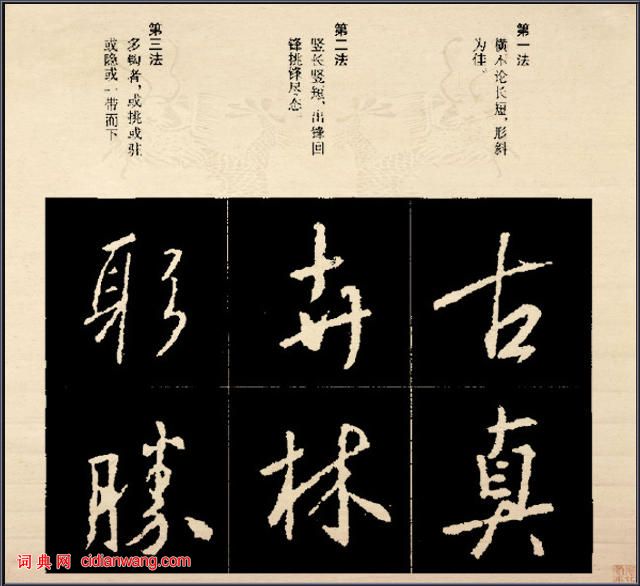 第一法
横不论长短，形斜
为佳。
第二法
竖长竖短，出锋回
锋挑锋尽态
第三法
多钩者，或挑或驻
或隐或一带而下
古
真
卉
林
躬
胜
词典网 cidianwang.com